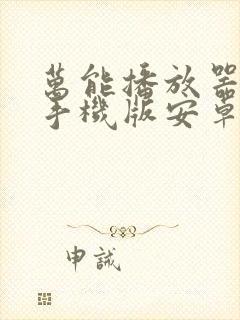 萬能播放器
手機版安卓
申誡